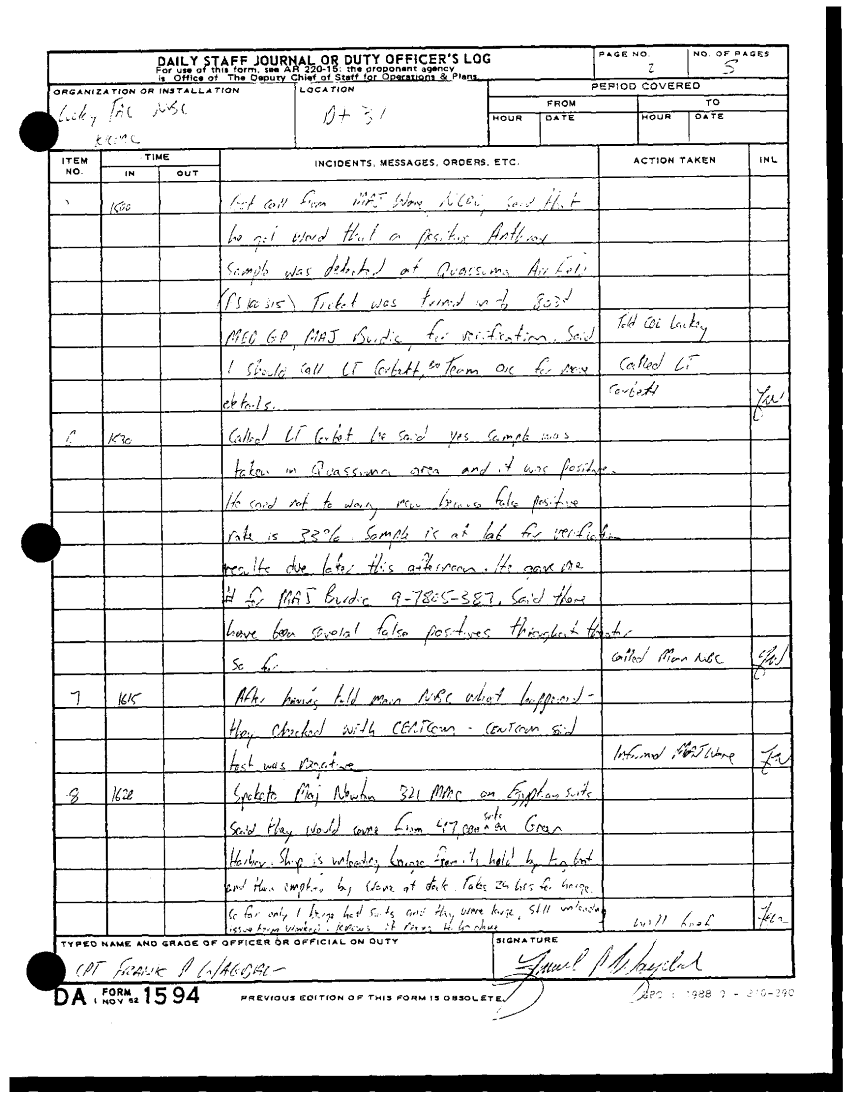 DAILY STAFF JOURNAL OR DUTY OFFICER'S LOG
For use of this form, see AR 220-15; the proponent agency
is Office of The Deputy Chief of Staff for Operations & Plans.
PAGE NO.
2
NO. OF PAGES
5
ORGANIZATION OR INSTALLATION
Lucky TAC NBC
LOCATION
D+31
PERIOD COVERED
FROM
TO
HOUR
DATE
HOUR
DATE
ITEM NO.
TIME
IN
OUT
INCIDENTS, MESSAGES, ORDERS, ETC.
ACTION TAKEN
INL
1500
Got call from MAJ Ware, said that
he got word that a positive Anthrax
sample was detected at Quassuma Air Field
Ticket was turned in to 803d
MED GP, MAJ Burdic, for verification. Said
Told Lackey
I should call LT Corbett, Team for more
Called LT
Corbett
details.
1530
Called LT Corbet he said yes sample was
taken in Quassuma area and it was positive.
He said not to worry now because false positive
rate is 33%. Sample is at lab for verification
results due later this afternoon. He gave me
# for MAJ Burdic 9-7805-387. Said there
have been several false positives throughout theater
so far.
Called Main NBC
7
1615
After having told main NBC what happened -
they checked with CENTCOM - CENTCOM said
test was negative
Informed MAJ Ware
8
1620
Spoke to Maj Newton 321 MMC on Egyptian suits
said they would come from 47,000 suits on Green
Harbor. Ship is unloading barge from its hold by tug boat
and then emptied by crane at dock. Takes 24 hrs for barge.
So far only 1 barge had suits and they were large, still unloading
will brief
TYPED NAME AND GRADE OF OFFICER OR OFFICIAL ON DUTY
CPT FRANK P
SIGNATURE
DA FORM 1594
1 NOV 62
PREVIOUS EDITION OF THIS FORM IS OBSOLETE.